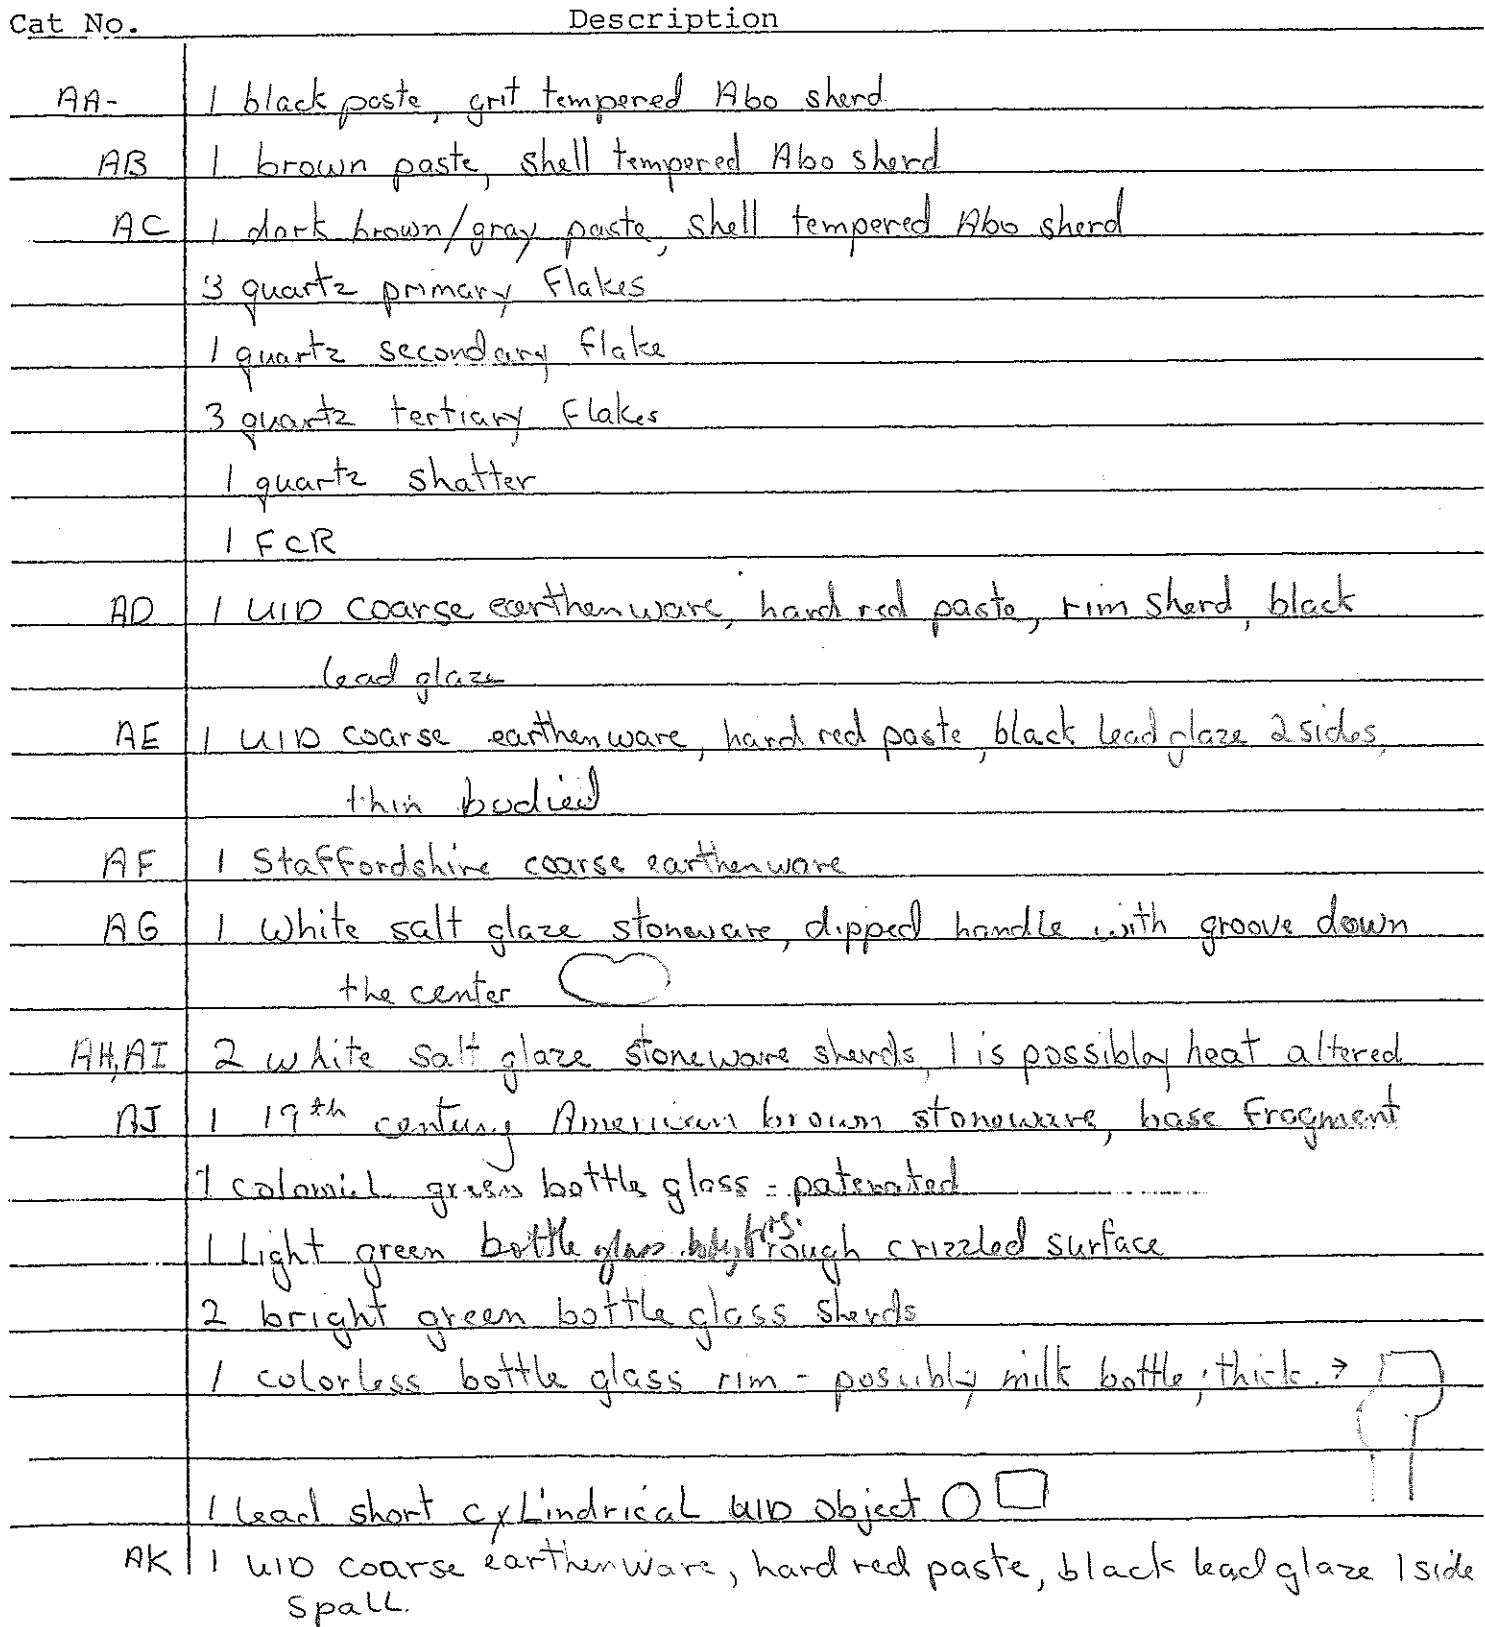 Cat No. Description
AA- 1 black paste, grit tempered Abo sherd
AB 1 brown paste, shell tempered Abo sherd
AC 1 dark brown/gray paste, shell tempered Abo sherd
3 quartz primary Flakes
1 quartz secondary flake
3 quartz tertiary Flakes
1 quartz shatter
1 FCR
AD 1 UID coarse earthenware, hard red paste, rim sherd, black
lead glaze
AE 1 UID coarse earthenware, hard red paste, black lead glaze 2 sides,
thin bodied
AF 1 Staffordshire coarse earthenware
AG 1 White salt glaze stoneware, dipped handle with groove down
the center
AH,AI 2 white salt glaze stoneware sherds, 1 is possiblay heat altered
AJ 1 19th century American brown stoneware, base fragment
colonial green bottle glass - patenated
1 Light green bottle glass body rough crizzled surface
2 bright green bottle glass sherds
1 colorless bottle glass rim - possibly milk bottle; thick. →
1 lead short cylindrical UID object
AK 1 UID coarse earthenware, hard red paste, black lead glaze 1 side
spall.